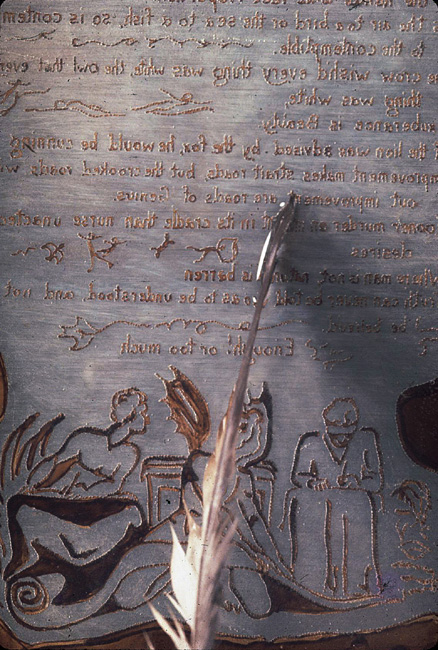 s the air to a bird or the sea to a fish, so is contem
to the contemptible.
e crow wish'd every thing was the owl that ever
thing was white,
xuberance is Beauty.
f the lion was advised by the fox, he would be cunning
mprovement makes strait roads, but the crooked roads
out improvement are roads of Genius.
ooner murder an in its cradle than nurse unacted
desires
Where man is not, nature is barren
ruth can never be told so as to be understood, and not
be
Enough! or too much